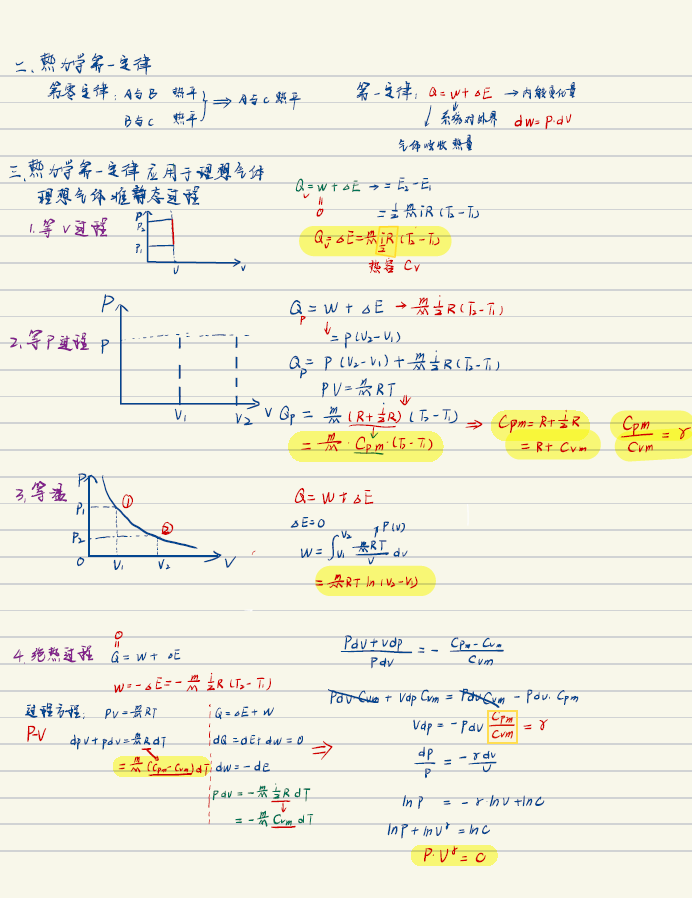 二、热力学第一定律
第零定律: A与B 热平 } ⇒ A与C 热平
B与C 热平
第一定律: Q = W + ΔE → 内能变化量
系统对外界 dW = P·dV
气体吸收热量
三、热力学第一定律应用于理想气体
理想气体准静态过程
1. 等V过程
P
P₂
P₁
V
V
Q_V = W + ΔE → = E₂ - E₁
0 = i/2 m/M R (T₂ - T₁)
Q_V = ΔE = m/M i/2 R (T₂ - T₁)
热容 Cv
2. 等P过程
P
P
V₁ V₂ V
Q_P = W + ΔE → m/M i/2 R (T₂ - T₁)
= P(V₂ - V₁)
Q_P = P(V₂ - V₁) + m/M i/2 R (T₂ - T₁)
PV = m/M RT
Q_P = m/M (R + i/2 R) (T₂ - T₁) ⇒ Cpm = R + i/2 R Cpm/Cvm = γ
= m/M · Cpm · (T₂ - T₁) = R + Cvm
3. 等温
P
P₁ ①
P₂ ②
0 V₁ V₂ V
Q = W + ΔE
ΔE = 0 P(V)
W = ∫_{V₁}^{V₂} (m/M RT)/V dV
= m/M RT ln (V₂ - V₁)
4. 绝热过程
0
Q = W + ΔE
W = -ΔE = -m/M i/2 R (T₂ - T₁)
过程方程: PV = m/M RT
P-V dpV + pdV = m/M R dT
= m/M (Cpm - Cvm) dT
Q = ΔE + W
dQ = dE + dW = 0 ⇒
dW = -dE
PdV = -m/M i/2 R dT
= -m/M Cvm dT
(PdV + Vdp)/PdV = - (Cpm - Cvm)/Cvm
PdV Cvm + Vdp Cvm = PdV Cvm - PdV · Cpm
Vdp = -PdV Cpm/Cvm = γ
dP/P = -γdV/V
lnP = -γ·lnV + lnC
lnP + lnV^γ = lnC
P·V^γ = C